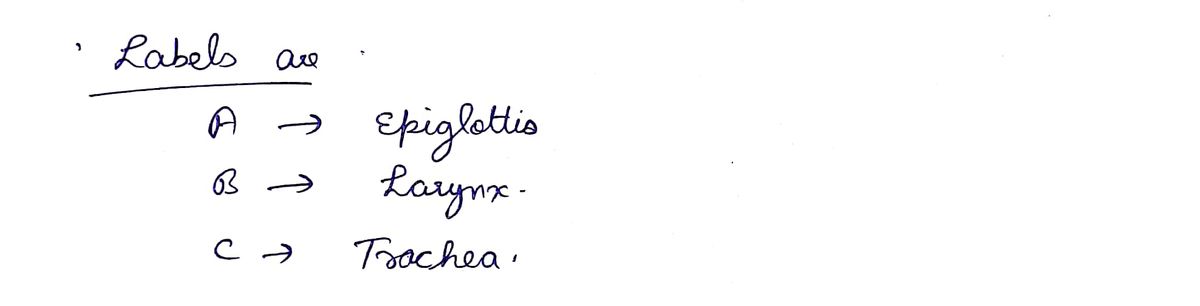 Labels are
A → Epiglottis
B → Larynx.
C → Trachea.